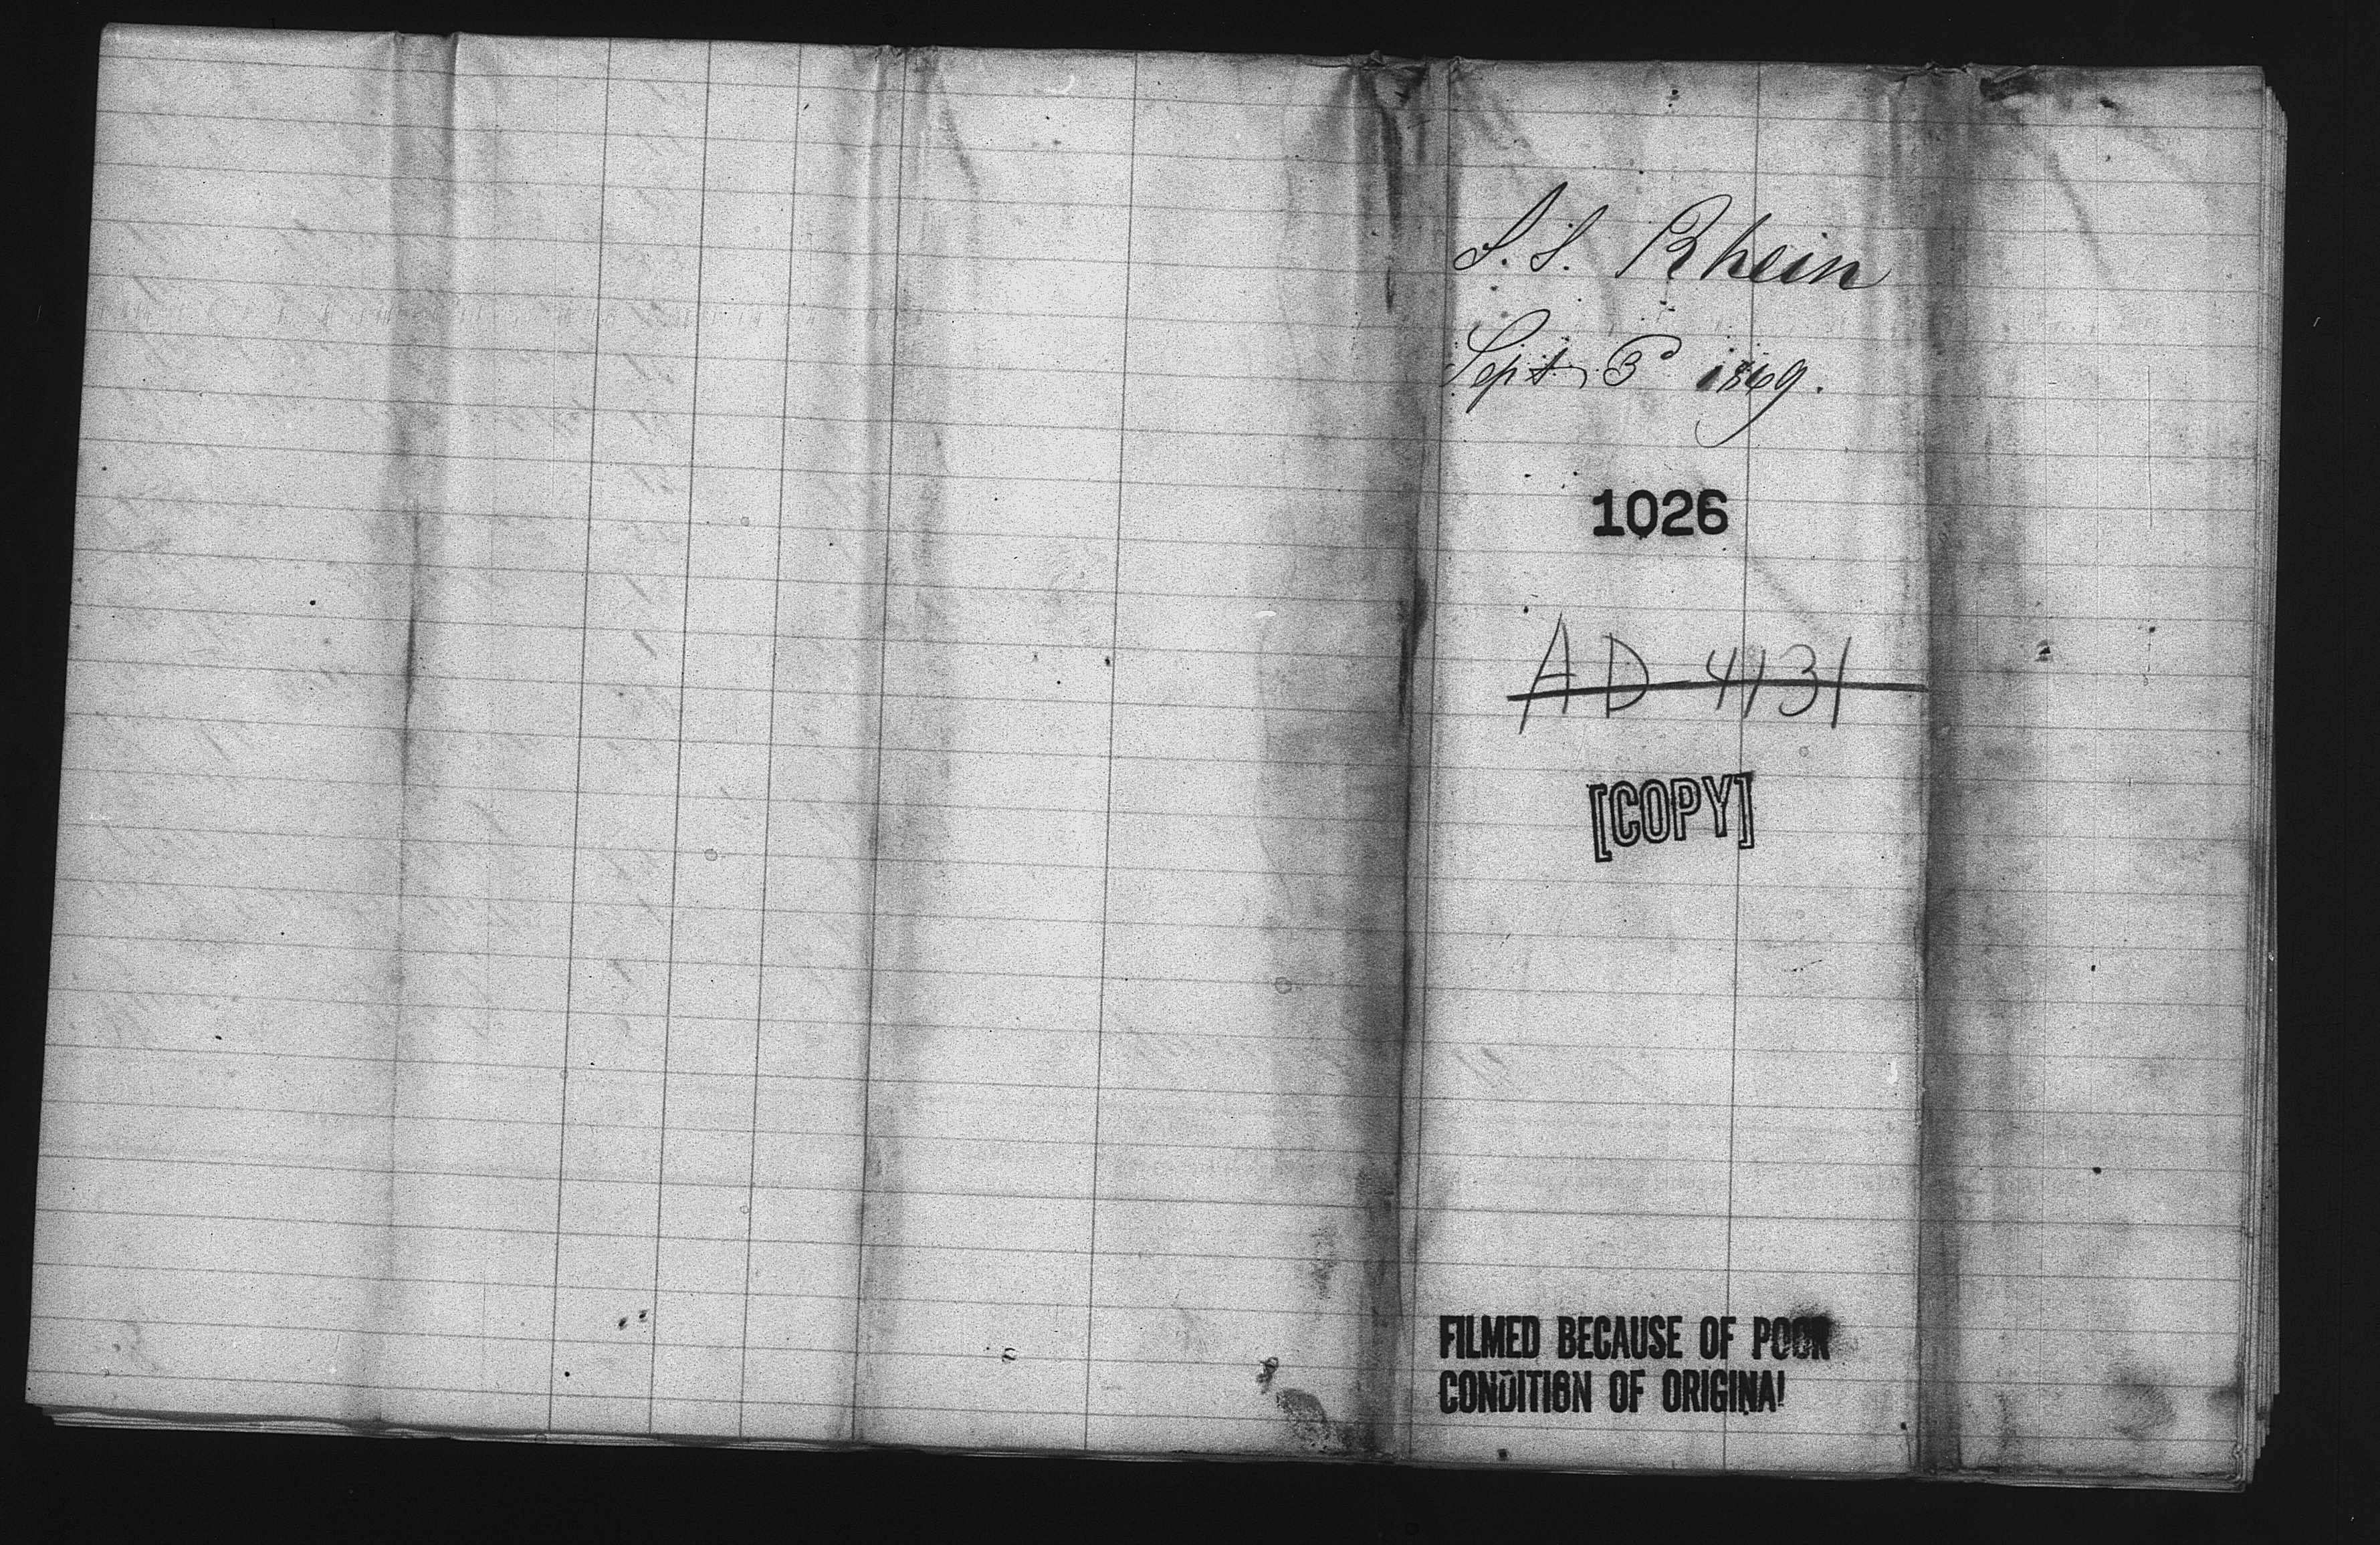 S. S. Rhein
Sept. 3d 1869.
1026
AD-4131
[COPY]
FILMED BECAUSE OF POOR
CONDITION OF ORIGINAL